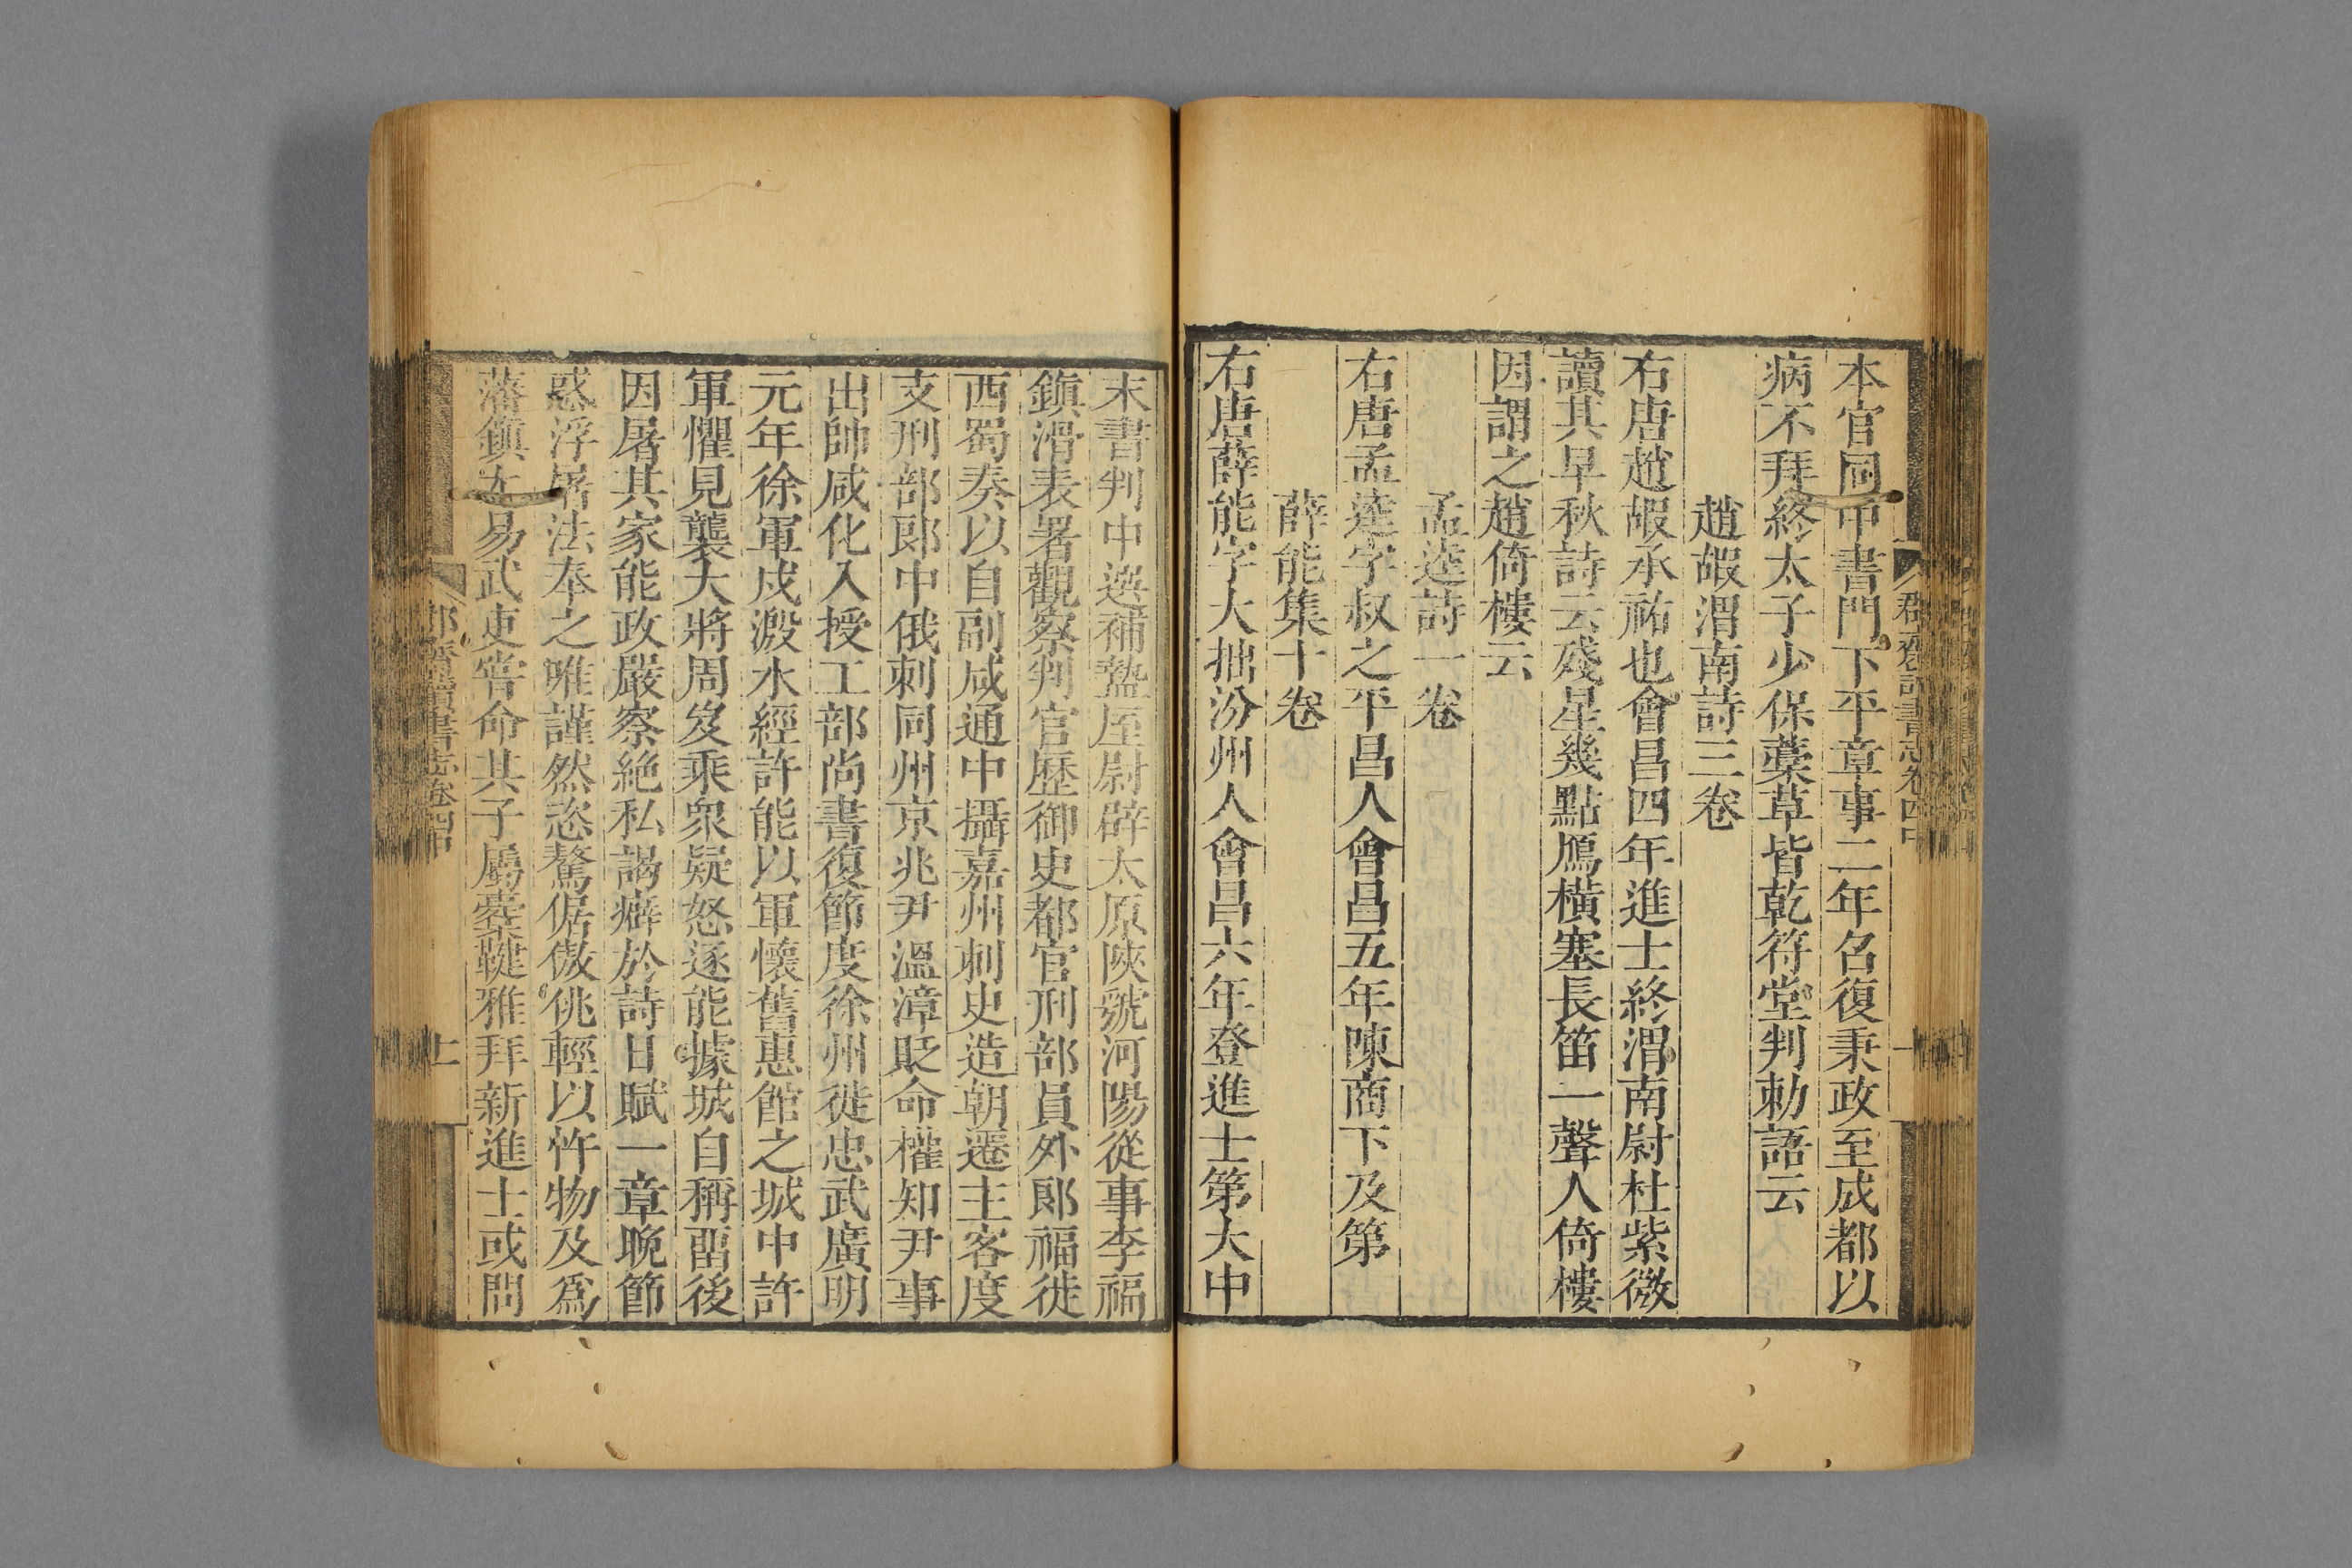 本官同中書門下平章事二年名復秉政至成都以
病不拜終太子少保藁草皆乾符堂判勅語云
趙嘏渭南詩三卷
右唐趙嘏承祐也會昌四年進士終渭南尉杜紫微
讀其早秋詩云殘星幾點鴈橫塞長笛一聲人倚樓
因謂之趙倚樓云
孟遲詩一卷
右唐孟遲字叔之平昌人會昌五年陳商下及第
薛能集十卷
右唐薛能字大拙汾州人會昌六年登進士第大中
末書判中選補盩厔尉辟太原陝虢河陽從事李福
鎮滑表署觀察判官歷御史都官刑部員外郎福徙
西蜀奏以自副咸通中攝嘉州刺史造朝遷主客度
支刑部郎中俄刺同州京兆尹溫漳貶命權知尹事
出帥咸化入授工部尚書復節度徐州徙忠武廣明
元年徐軍戍溵水經許能以軍懷舊惠館之城中許
軍懼見襲大將周岌乘衆疑怒逐能據城自稱留後
因屠其家能政嚴察絶私謁癖於詩日賦一章晚節
惑浮屠法奉之唯謹然恣驁倨傲佻輕以忤物及爲
藩鎮易武吏嘗命其子屬櫜鞬雅拜新進士或問
郡齋讀書志卷四中